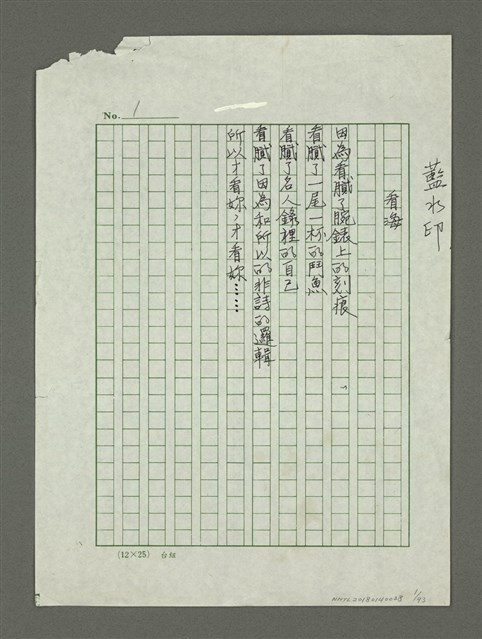 No. 1
藍水印
看海
因為看膩了腕錶上的刻痕
看膩了一尾一杯的鬥魚
看膩了名人錄裡的自己
看膩了因為和所以的非詩的邏輯
所以才看妳，才看妳……
(12×25) 台紅
NMTL20180140028 1/43